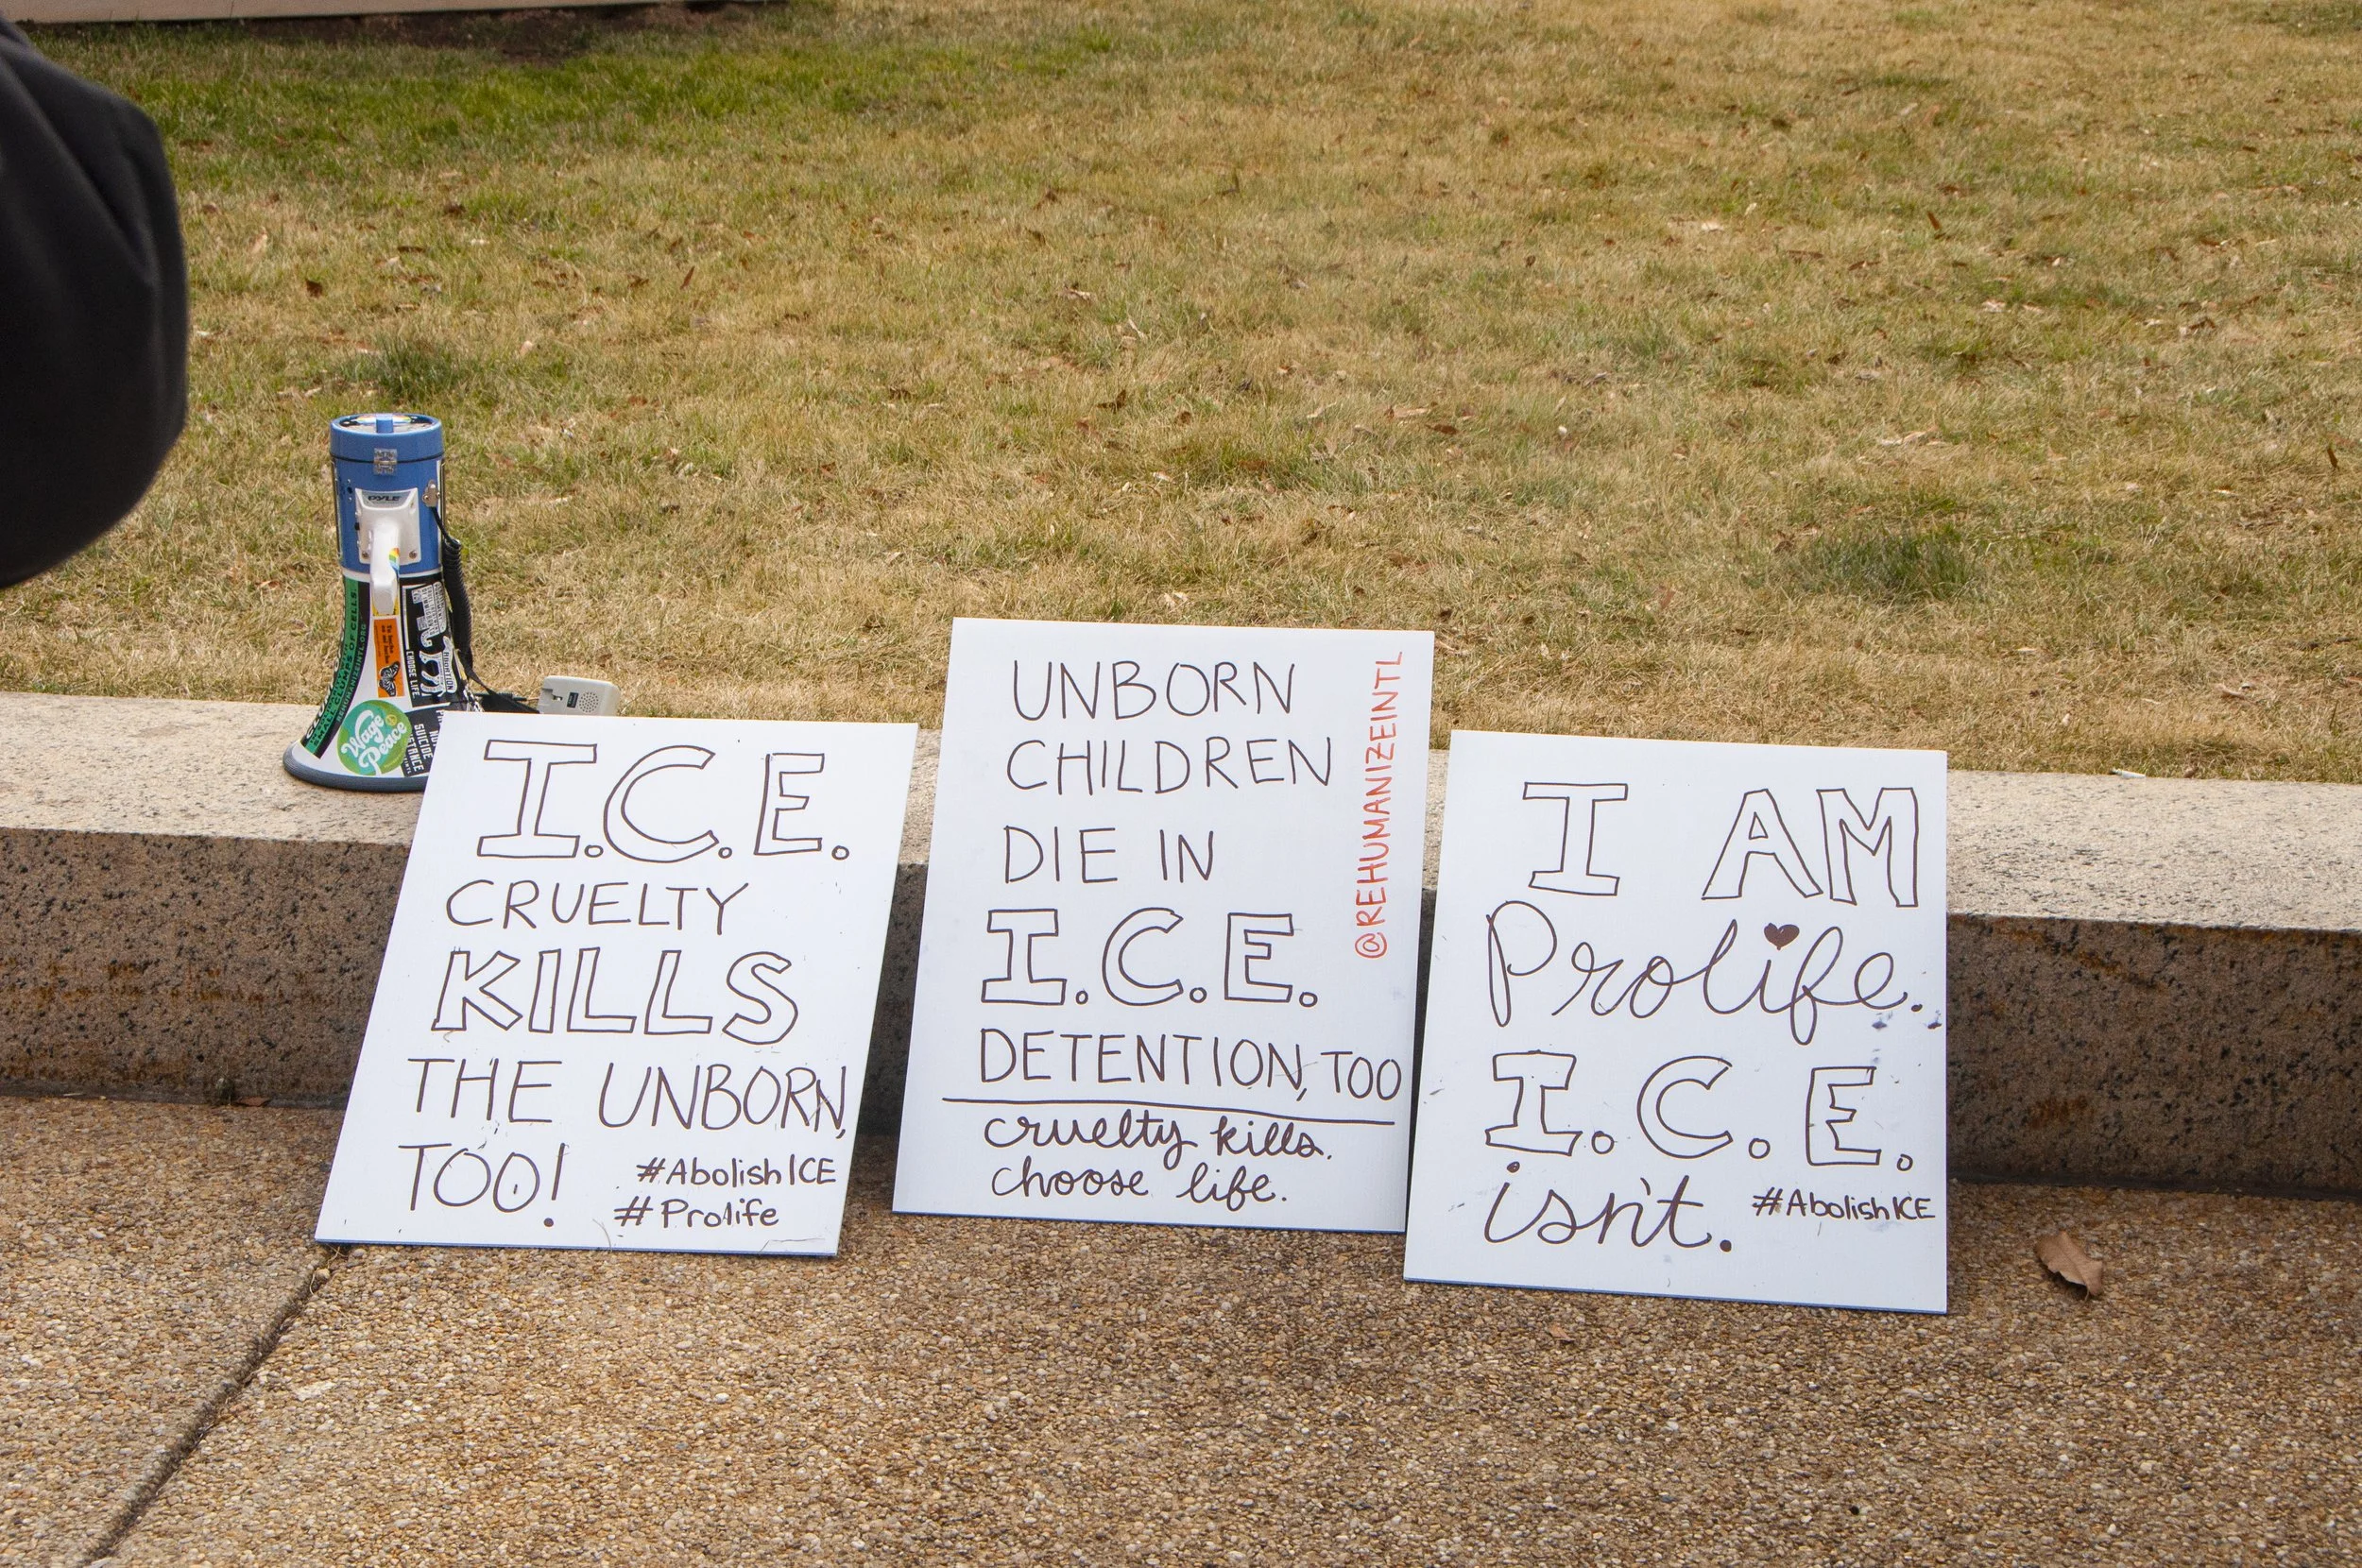 PYLE
CHOOSE LIFE.
Wage
Peace
I.C.E.
CRUELTY
KILLS
THE UNBORN,
TOO!
#AbolishICE
#Prolife
UNBORN
CHILDREN
DIE IN
I.C.E.
DETENTION, TOO
cruelty kills.
choose life.
@REHUMANIZEINTL
I AM
Prolife.
I.C.E.
isn't.
#AbolishICE